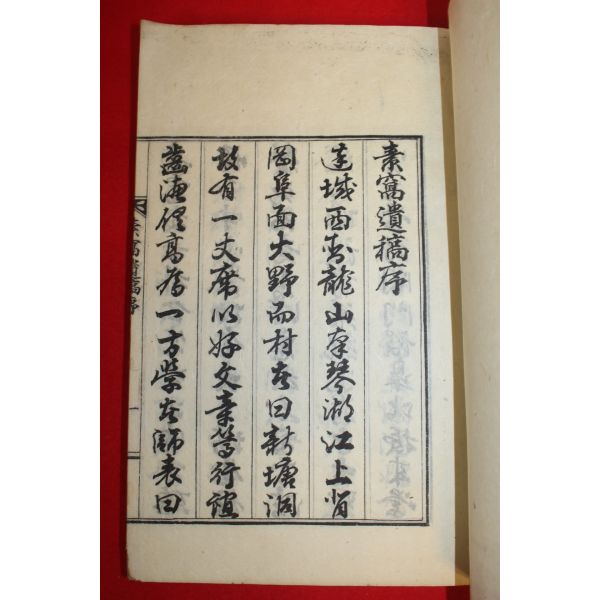 素窩遺稿序
達城西臥龍山南琴湖江上背
岡阜面大野而村者曰新塘洞
故有一丈席以好文章篤行誼
齒德高爲一方學者師表曰
素窩遺稿序
一